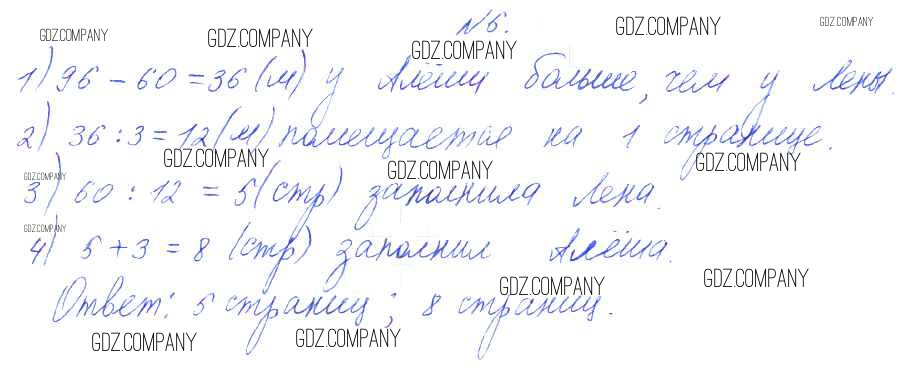 №6.
1) 96 – 60 = 36 (м) у Алёши больше, чем у Лены.
2) 36 : 3 = 12 (м) помещается на 1 странице.
3) 60 : 12 = 5 (стр) заполнила Лена.
4) 5 + 3 = 8 (стр) заполнил Алёша.
Ответ: 5 страниц; 8 страниц.
GDZ.COMPANY
GDZ.COMPANY
GDZ.COMPANY
GDZ.COMPANY
GDZ.COMPANY
GDZ.COMPANY
GDZ.COMPANY
GDZ.COMPANY
GDZ.COMPANY
GDZ.COMPANY
GDZ.COMPANY
GDZ.COMPANY
GDZ.COMPANY
GDZ.COMPANY